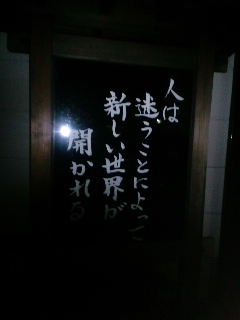 人は
迷うことによって
新しい世界が
開かれる